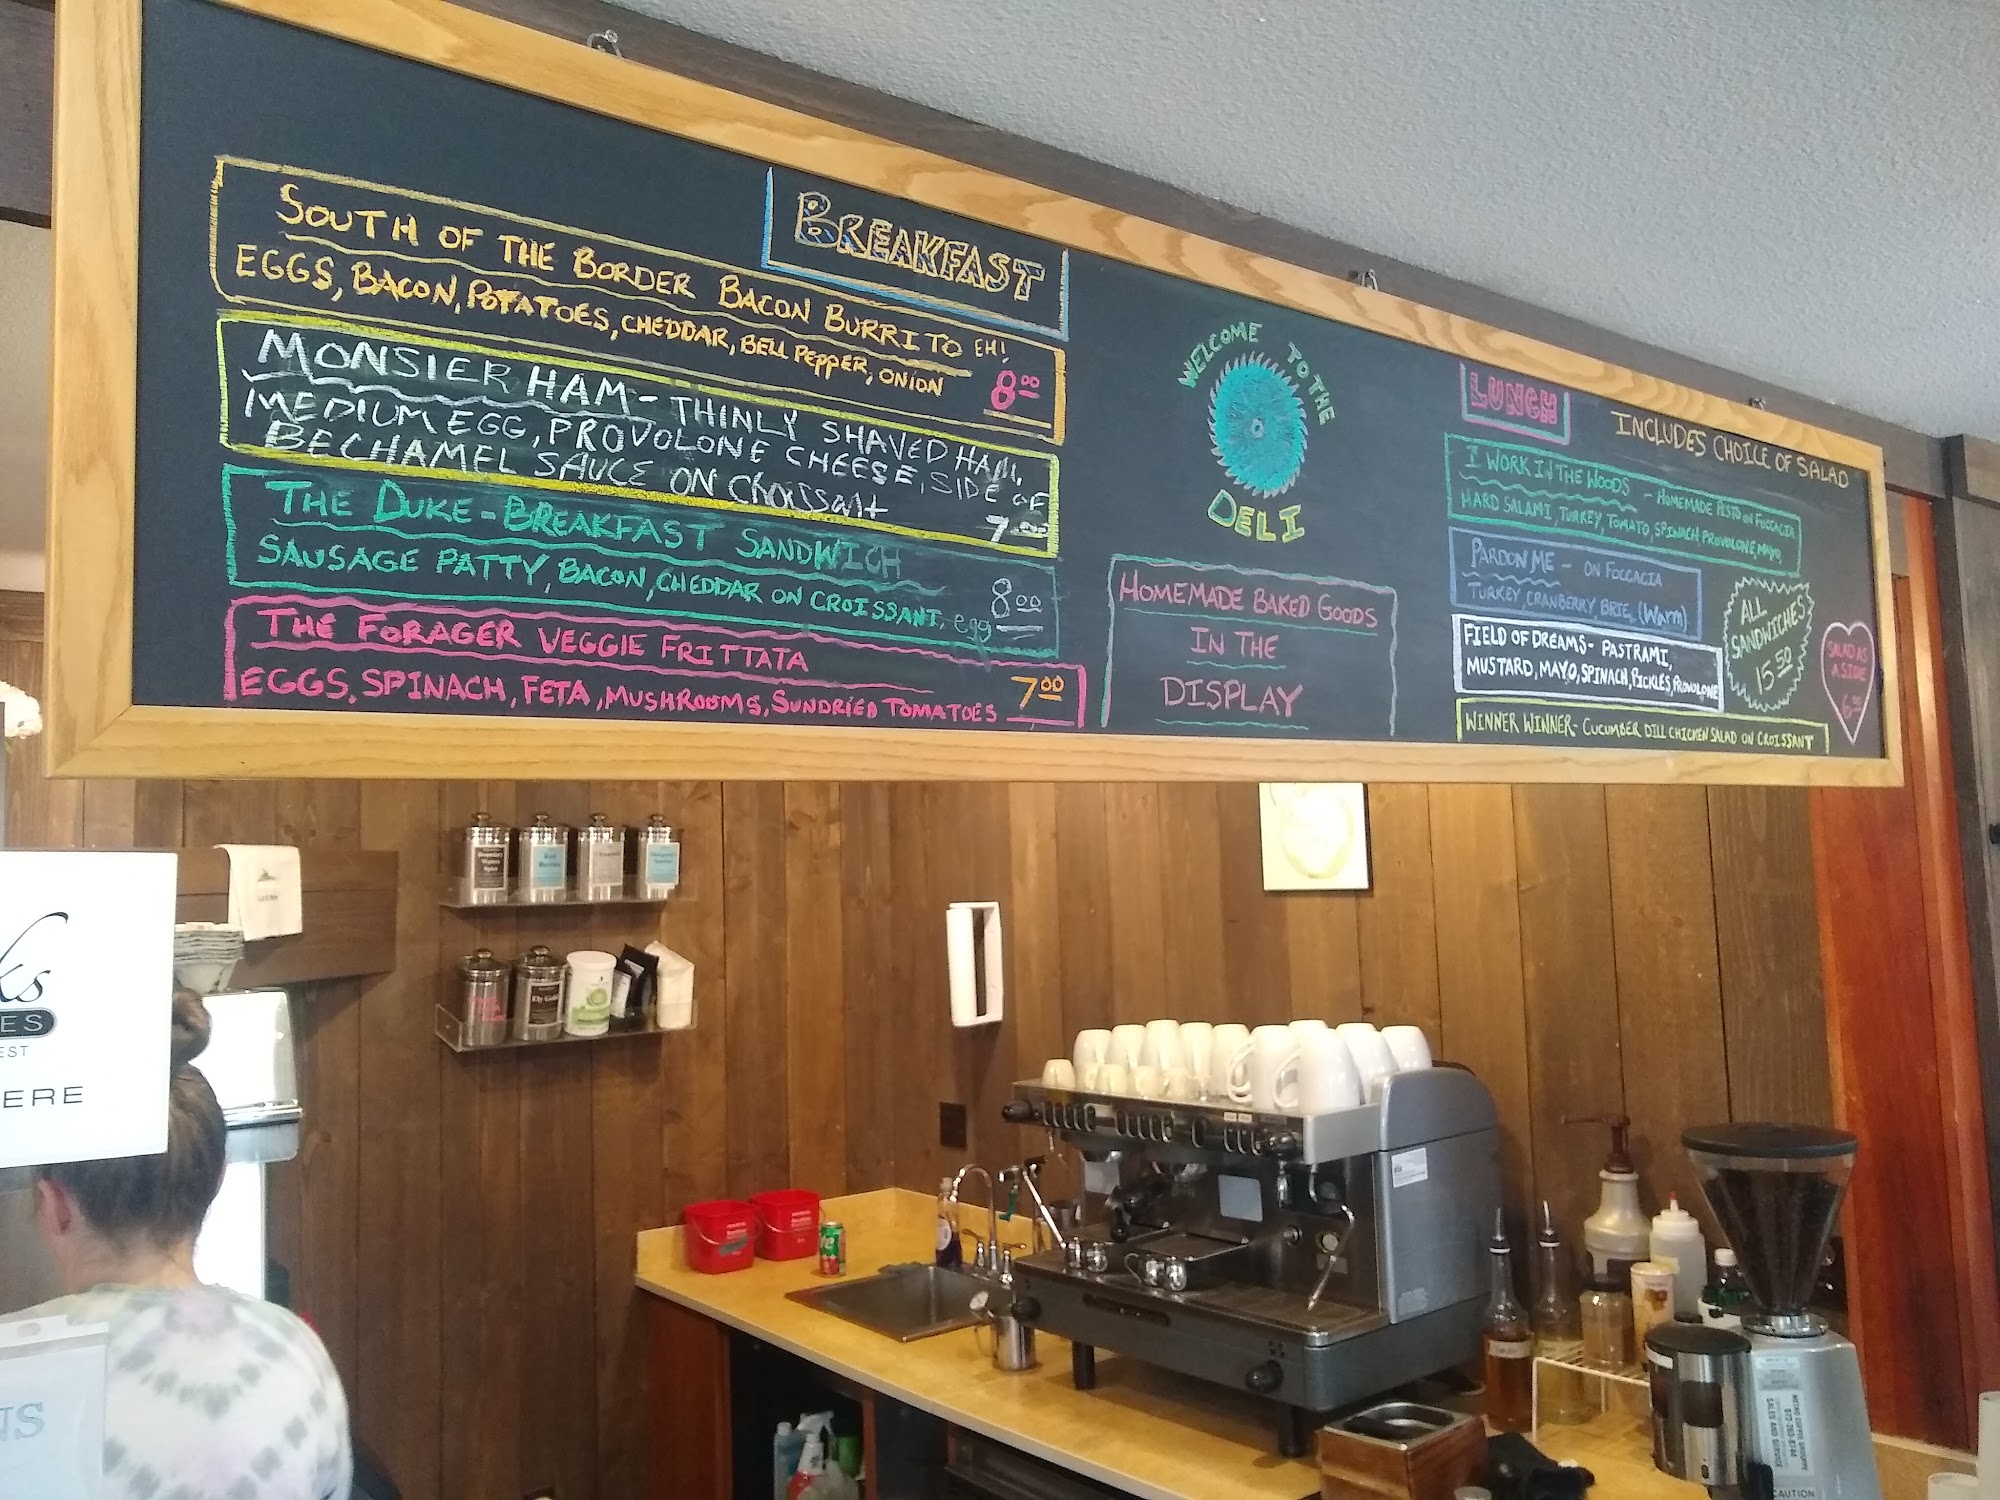 BREAKFAST
SOUTH OF THE BORDER BACON BURRITO EH!
EGGS, BACON, POTATOES, CHEDDAR, BELL PEPPER, ONION 8.00
MONSIER HAM - THINLY SHAVED HAM,
MEDIUM EGG, PROVOLONE CHEESE, SIDE OF
BECHAMEL SAUCE ON CROISSANT 7.00
THE DUKE - BREAKFAST SANDWICH
SAUSAGE PATTY, BACON, CHEDDAR ON CROISSANT, egg 8.00
THE FORAGER VEGGIE FRITTATA
EGGS, SPINACH, FETA, MUSHROOMS, SUNDRIED TOMATOES 7.00
WELCOME TO THE
DELI
HOMEMADE BAKED GOODS
IN THE
DISPLAY
LUNCH
INCLUDES CHOICE OF SALAD
I WORK IN THE WOODS - HOMEMADE PESTO ON FOCCACIA
HARD SALAMI, TURKEY, TOMATO, SPINACH, PROVOLONE, MAYO,
PARDON ME - ON FOCCACIA
TURKEY, CRANBERRY, BRIE, (Warm)
FIELD OF DREAMS - PASTRAMI,
MUSTARD, MAYO, SPINACH, PICKLES, PROVOLONE
WINNER WINNER - CUCUMBER DILL CHICKEN SALAD ON CROISSANT
ALL
SANDWICHES
15.50
SALAD AS
A SIDE
6.00
ks
ES
EST
ERE
NS
CAUTION